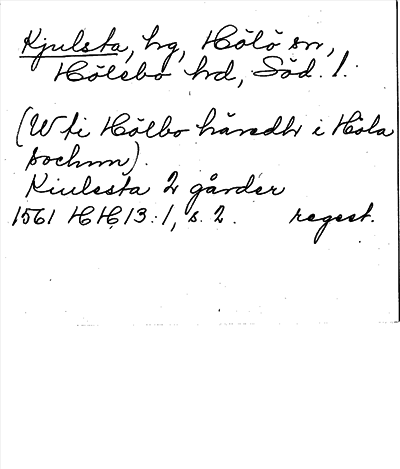 Kjulsta, hg, Hölö sn,
Hölebo hd, Söd. l.
(W ti Hölbo häredh i Höla
sochnn).
Kiulesta 2 gårder
1561 HH 13:1, s. 2. regest.